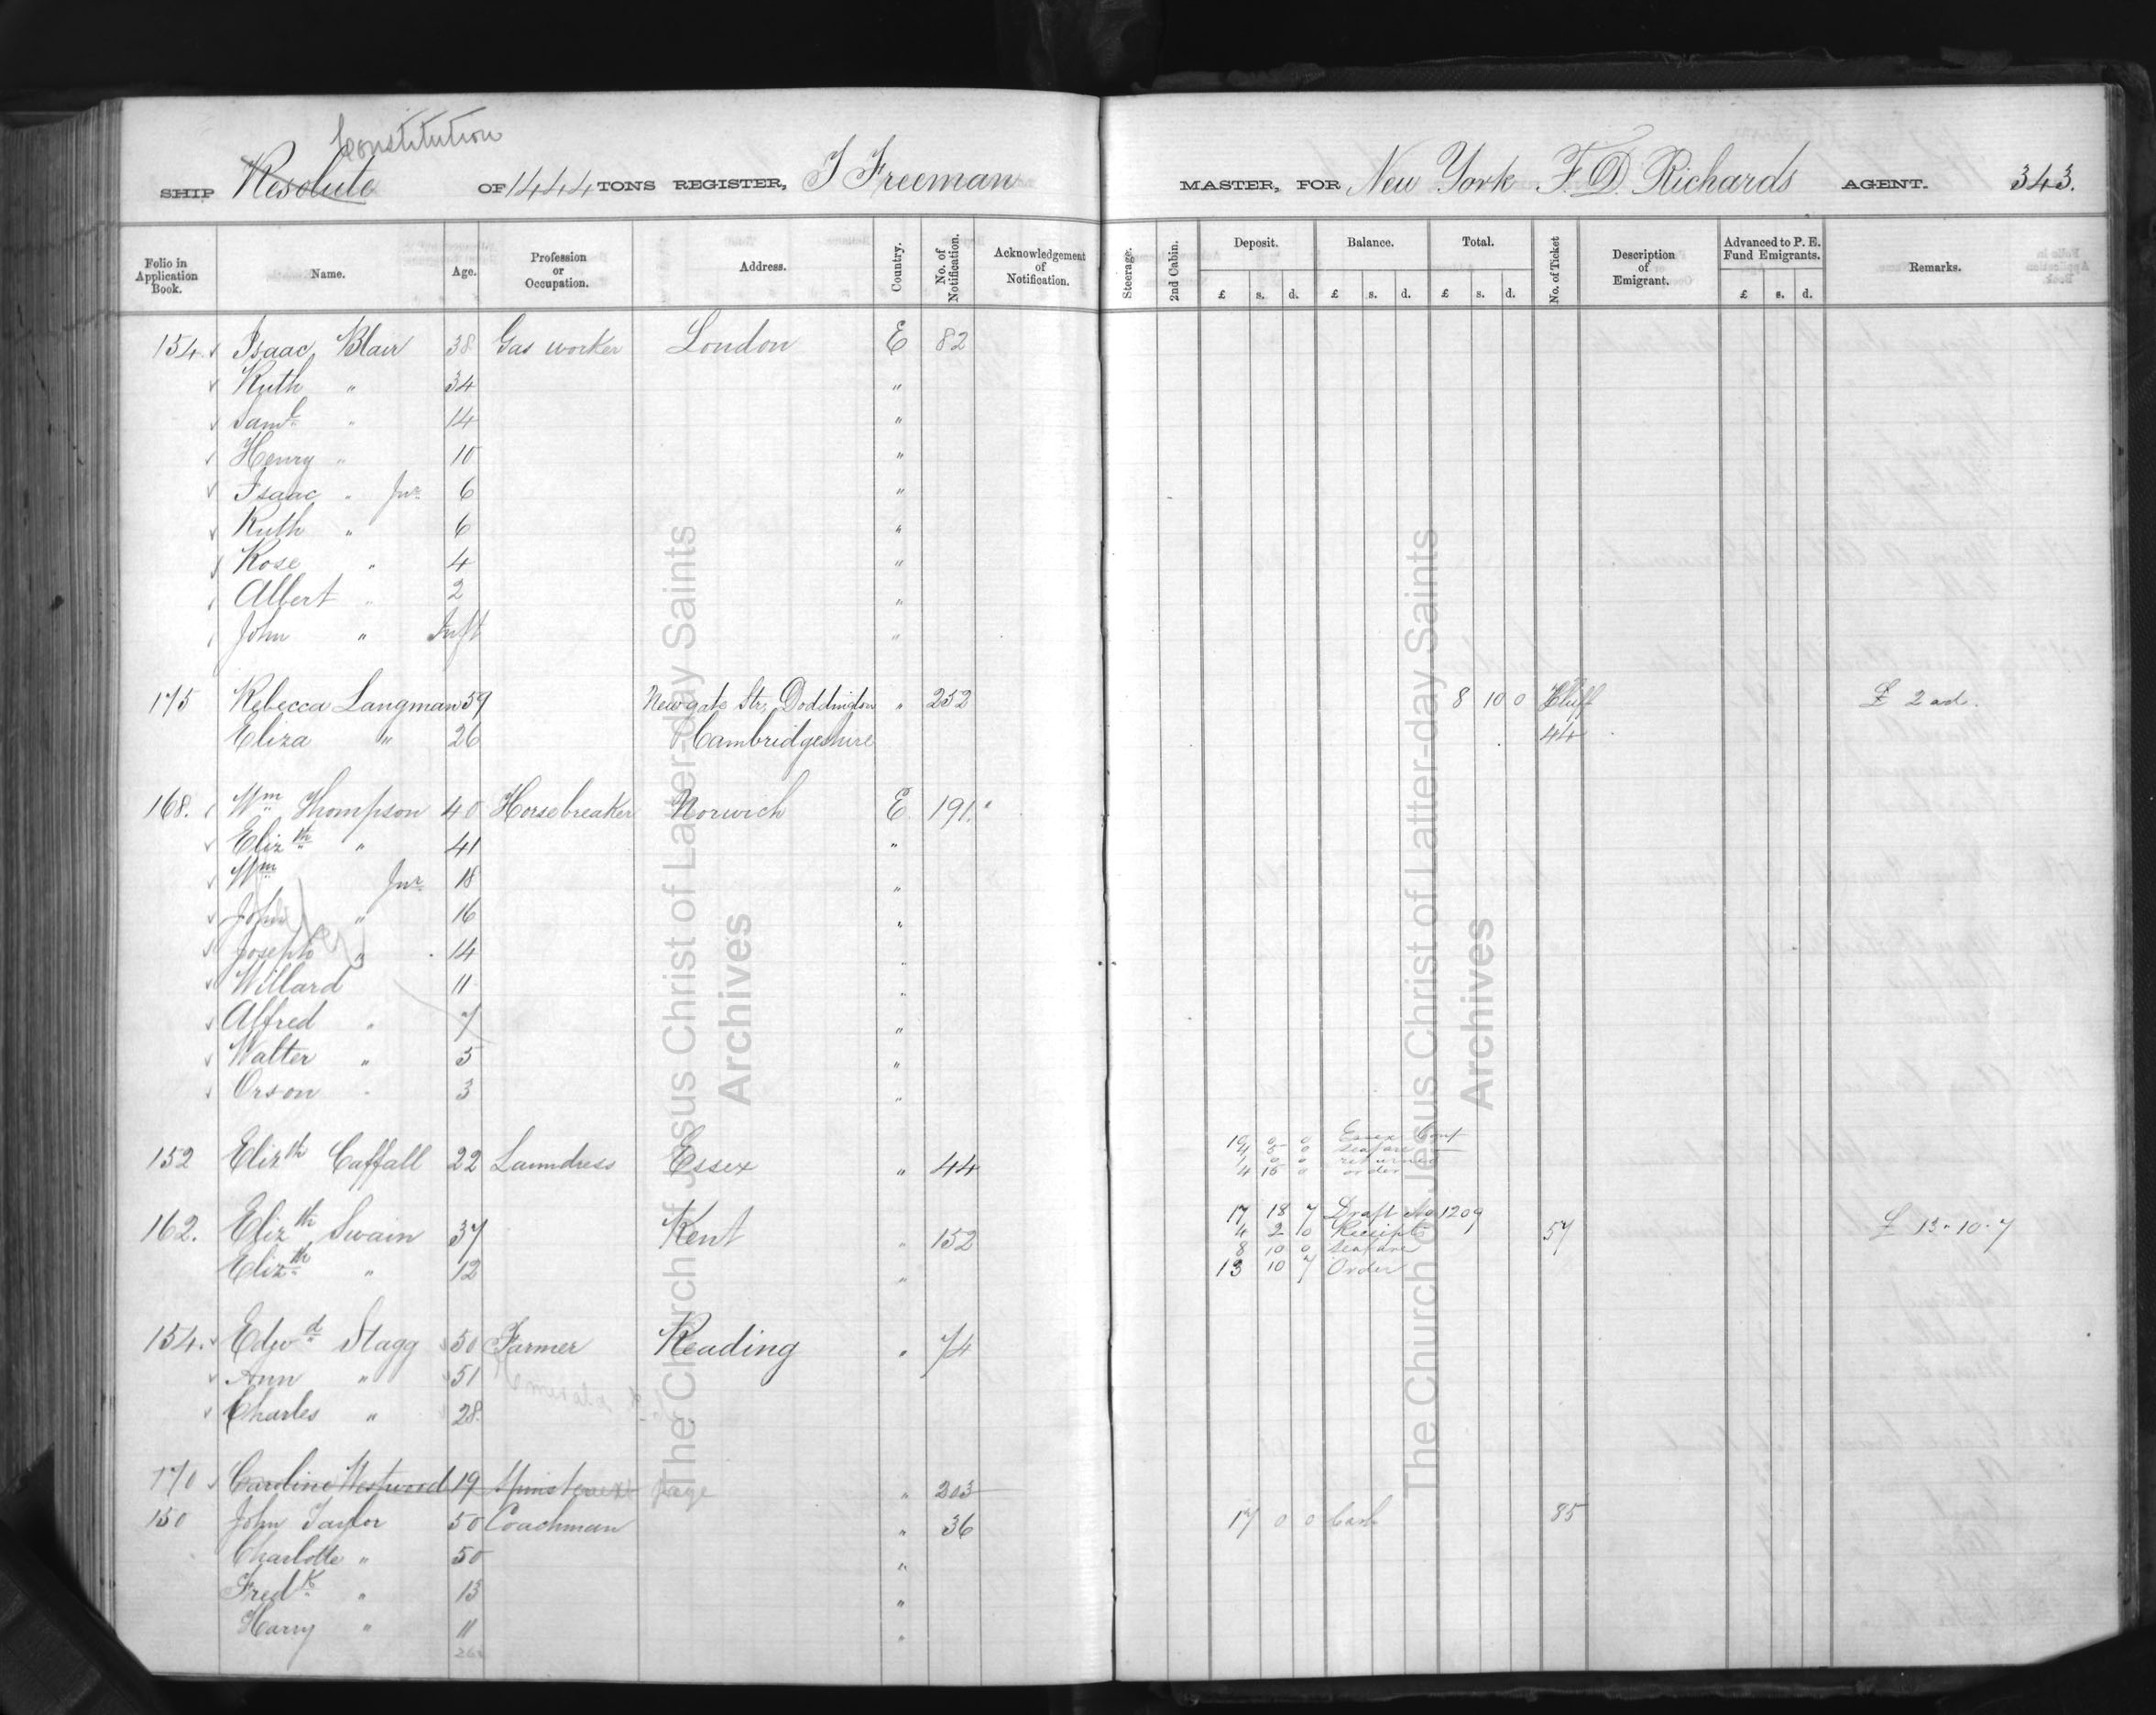 Constitution
SHIP Resolute OF 1444 TONS REGISTER, J Freeman MASTER, FOR New York F. D. Richards AGENT. 343.
Folio in Application Book. Name. Age. Profession or Occupation. Address. Country. No. of Notification. Acknowledgement of Notification. Steerage. 2nd Cabin. Deposit. Balance. Total. No. of Ticket Description of Emigrant. Advanced to P. E. Fund Emigrants. Remarks.
£ s. d. £ s. d. £ s. d. £ s. d.
154. Isaac Blair 38 Gas worker London E 82
Ruth " 34 "
Saml " 14 "
Henry " 10 "
Isaac " Jnr 6 "
Ruth " 6 "
Rose " 4 "
Albert " 2 "
John " Inft "
175 Rebecca Langman 59 Newgate Str, Doddington " 252 8 10 0 £ 2
Eliza " 26 Cambridgeshire 44
168. Wm Thompson 40 Horsebreaker Norwich E 191.
Elizth " 41 "
Wm Jnr 18 "
John " 16 "
Joseph " 14 "
Willard 11 "
Alfred " 7 "
Walter " 5 "
Orson " 3 "
Essex Conf
152 Elizth Caffall 22 Laundress Essex " 44
4 15 0 order
17 18 7 Draft No 1209
162. Elizth Swain 37 Kent " 152 4 2 0 Receipts 57 £ 13-10-7
8 10 0 Seafare
Elizth " 12 " 13 10 7 Order
154. Edwd Stagg 50 Farmer Reading " 74
Ann " 51
Charles " 28
170 Caroline Westwood 19 Spinster page " 203
150 John Taylor 50 Coachman " 36 17 0 0 Cash 85
Charlotte " 50 "
Fredk " 13 "
Harry " 11 "
The Church of Jesus Christ of Latter-day Saints
Archives
The Church of Jesus Christ of Latter-day Saints
Archives